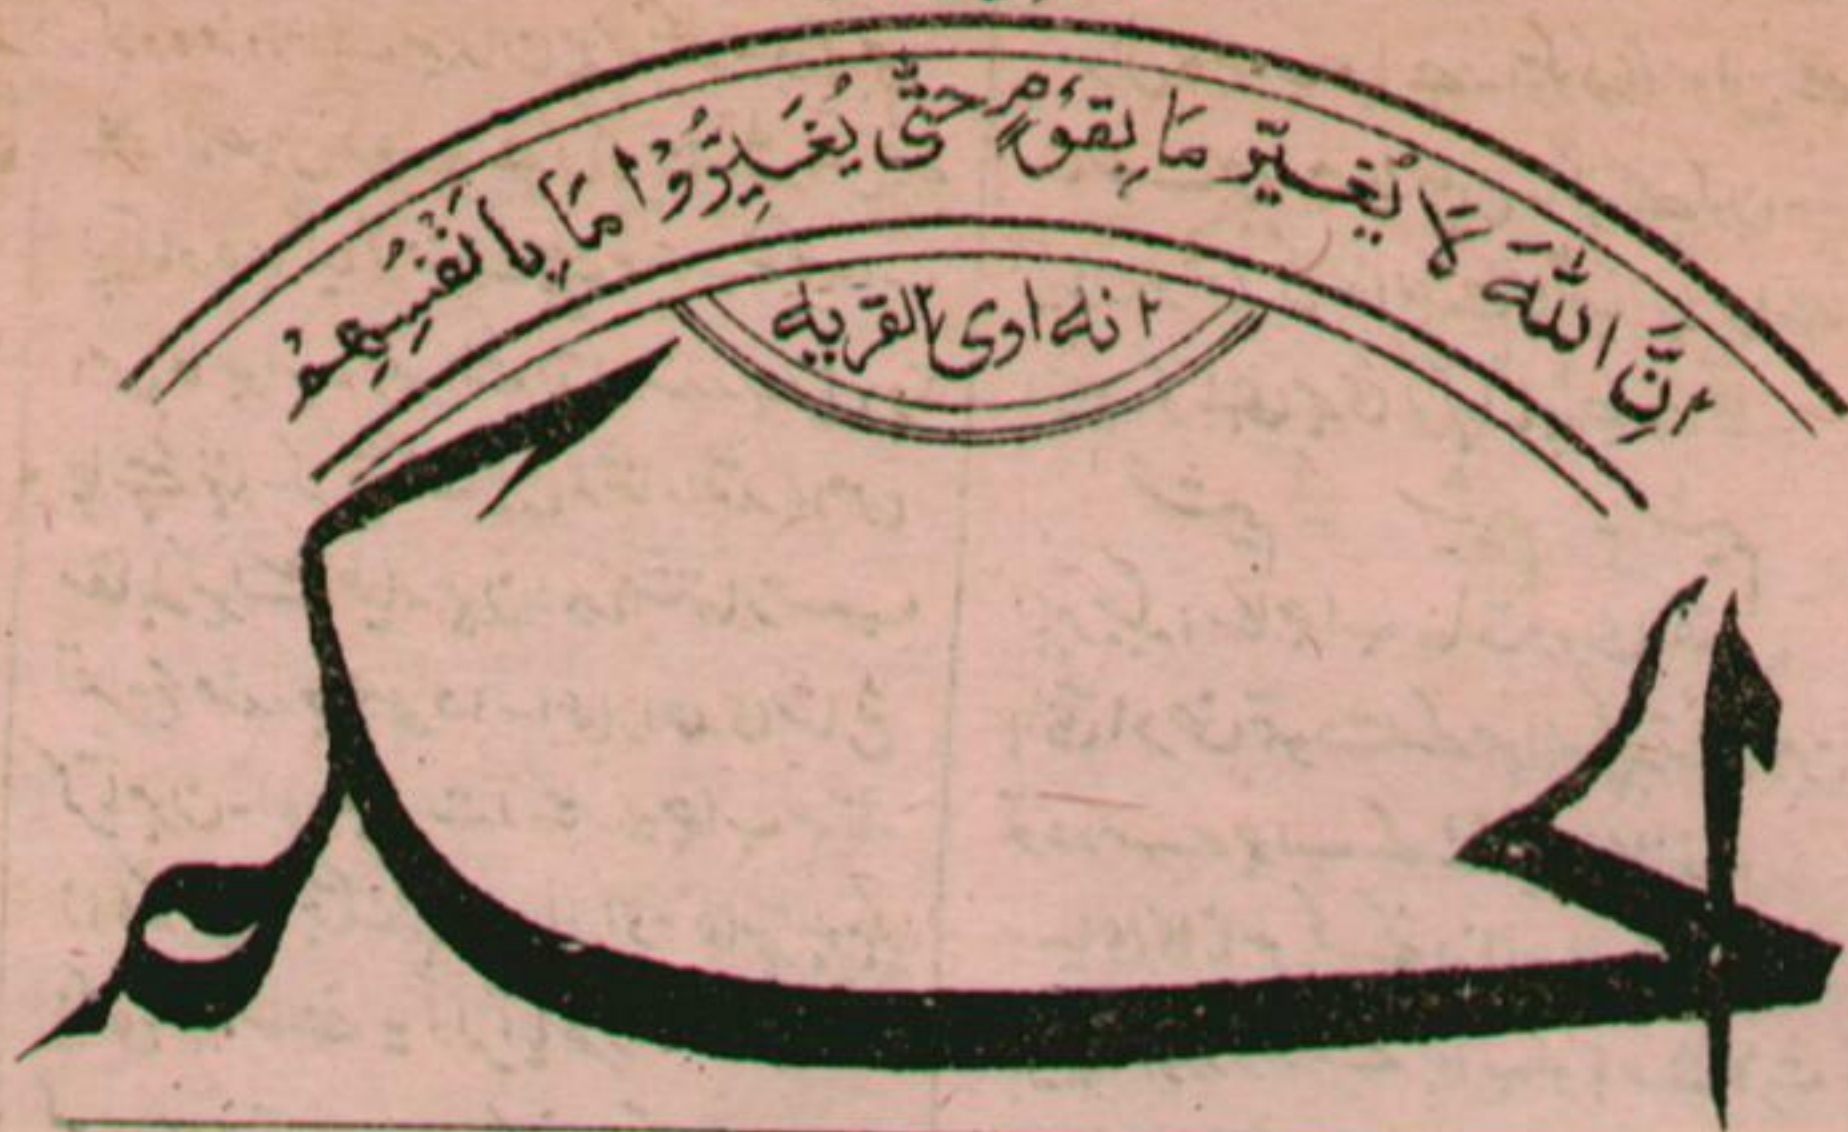 اِنَّ اللّٰهَ لَا يُغَيِّر مَا بِقَوْمٍ حَتّٰى يُغَيِّرُوْا مَا بِاَنْفُسِهِمْ
انه اوى القريه
الحكم